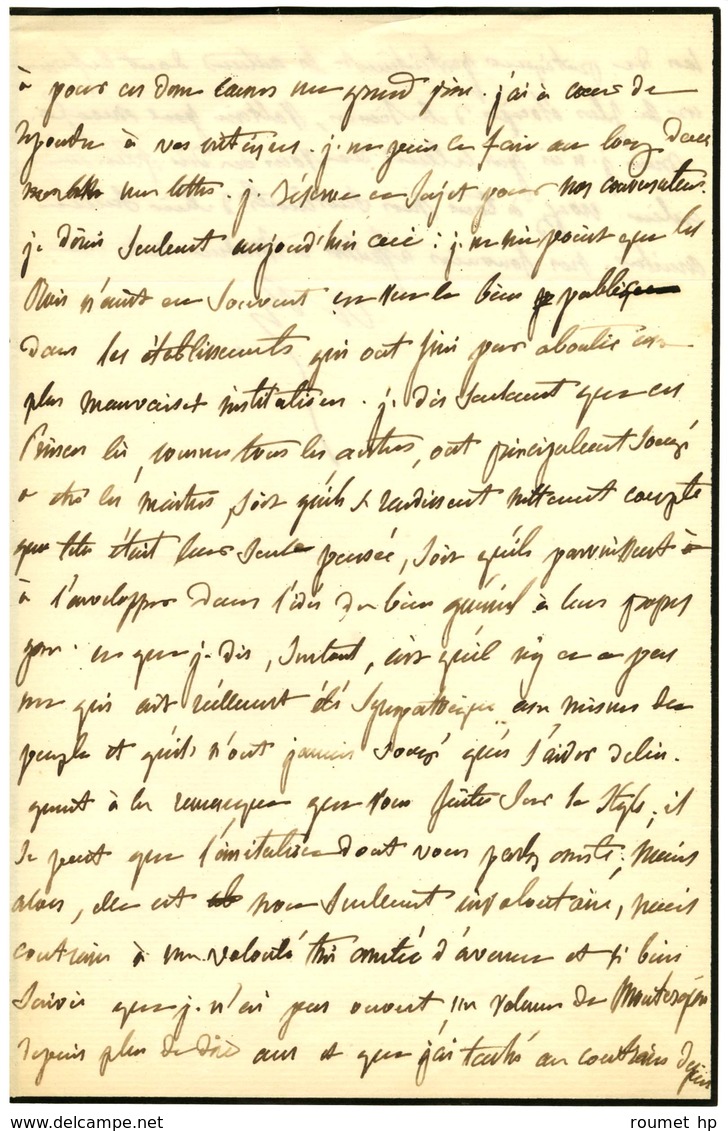 a pour ces deux causes un grand prix. j'ai à coeur de
répondre à vos critiques. je ne puis le faire au long dans
une lettre. je réserve ce sujet pour nos conversations.
je dirai seulement aujourd'hui ceci : je ne nie point que les
Rois n'aient eu souvent en vue le bien public
dans les établissements qui ont fini par aboutir aux
plus mauvaises institutions. je dis seulement que ces
Princes là, comme tous les autres, ont principalement songé
à être les maîtres, soit qu'ils se rendissent nettement compte
que telle était leur seule pensée, soit qu'ils parvinssent
à l'envelopper dans l'idée du bien général à leurs propres
yeux. ce que je dis, surtout, c'est qu'il n'y en a pas
un qui ait réellement été sympathique aux misères du
peuple et qu'ils n'ont jamais songé qu'à s'aider de lui.
quant à la remarque que vous faites sur le style, il
se peut que l'imitation dont vous parlez existe ; mais
alors, elle est non seulement involontaire, mais
contraire à une volonté très arrêtée d'avance et si bien
suivie que je n'ai pas ouvert un volume de Montesquieu
depuis plus de dix ans et que j'ai taché au contraire depuis
roumet hp